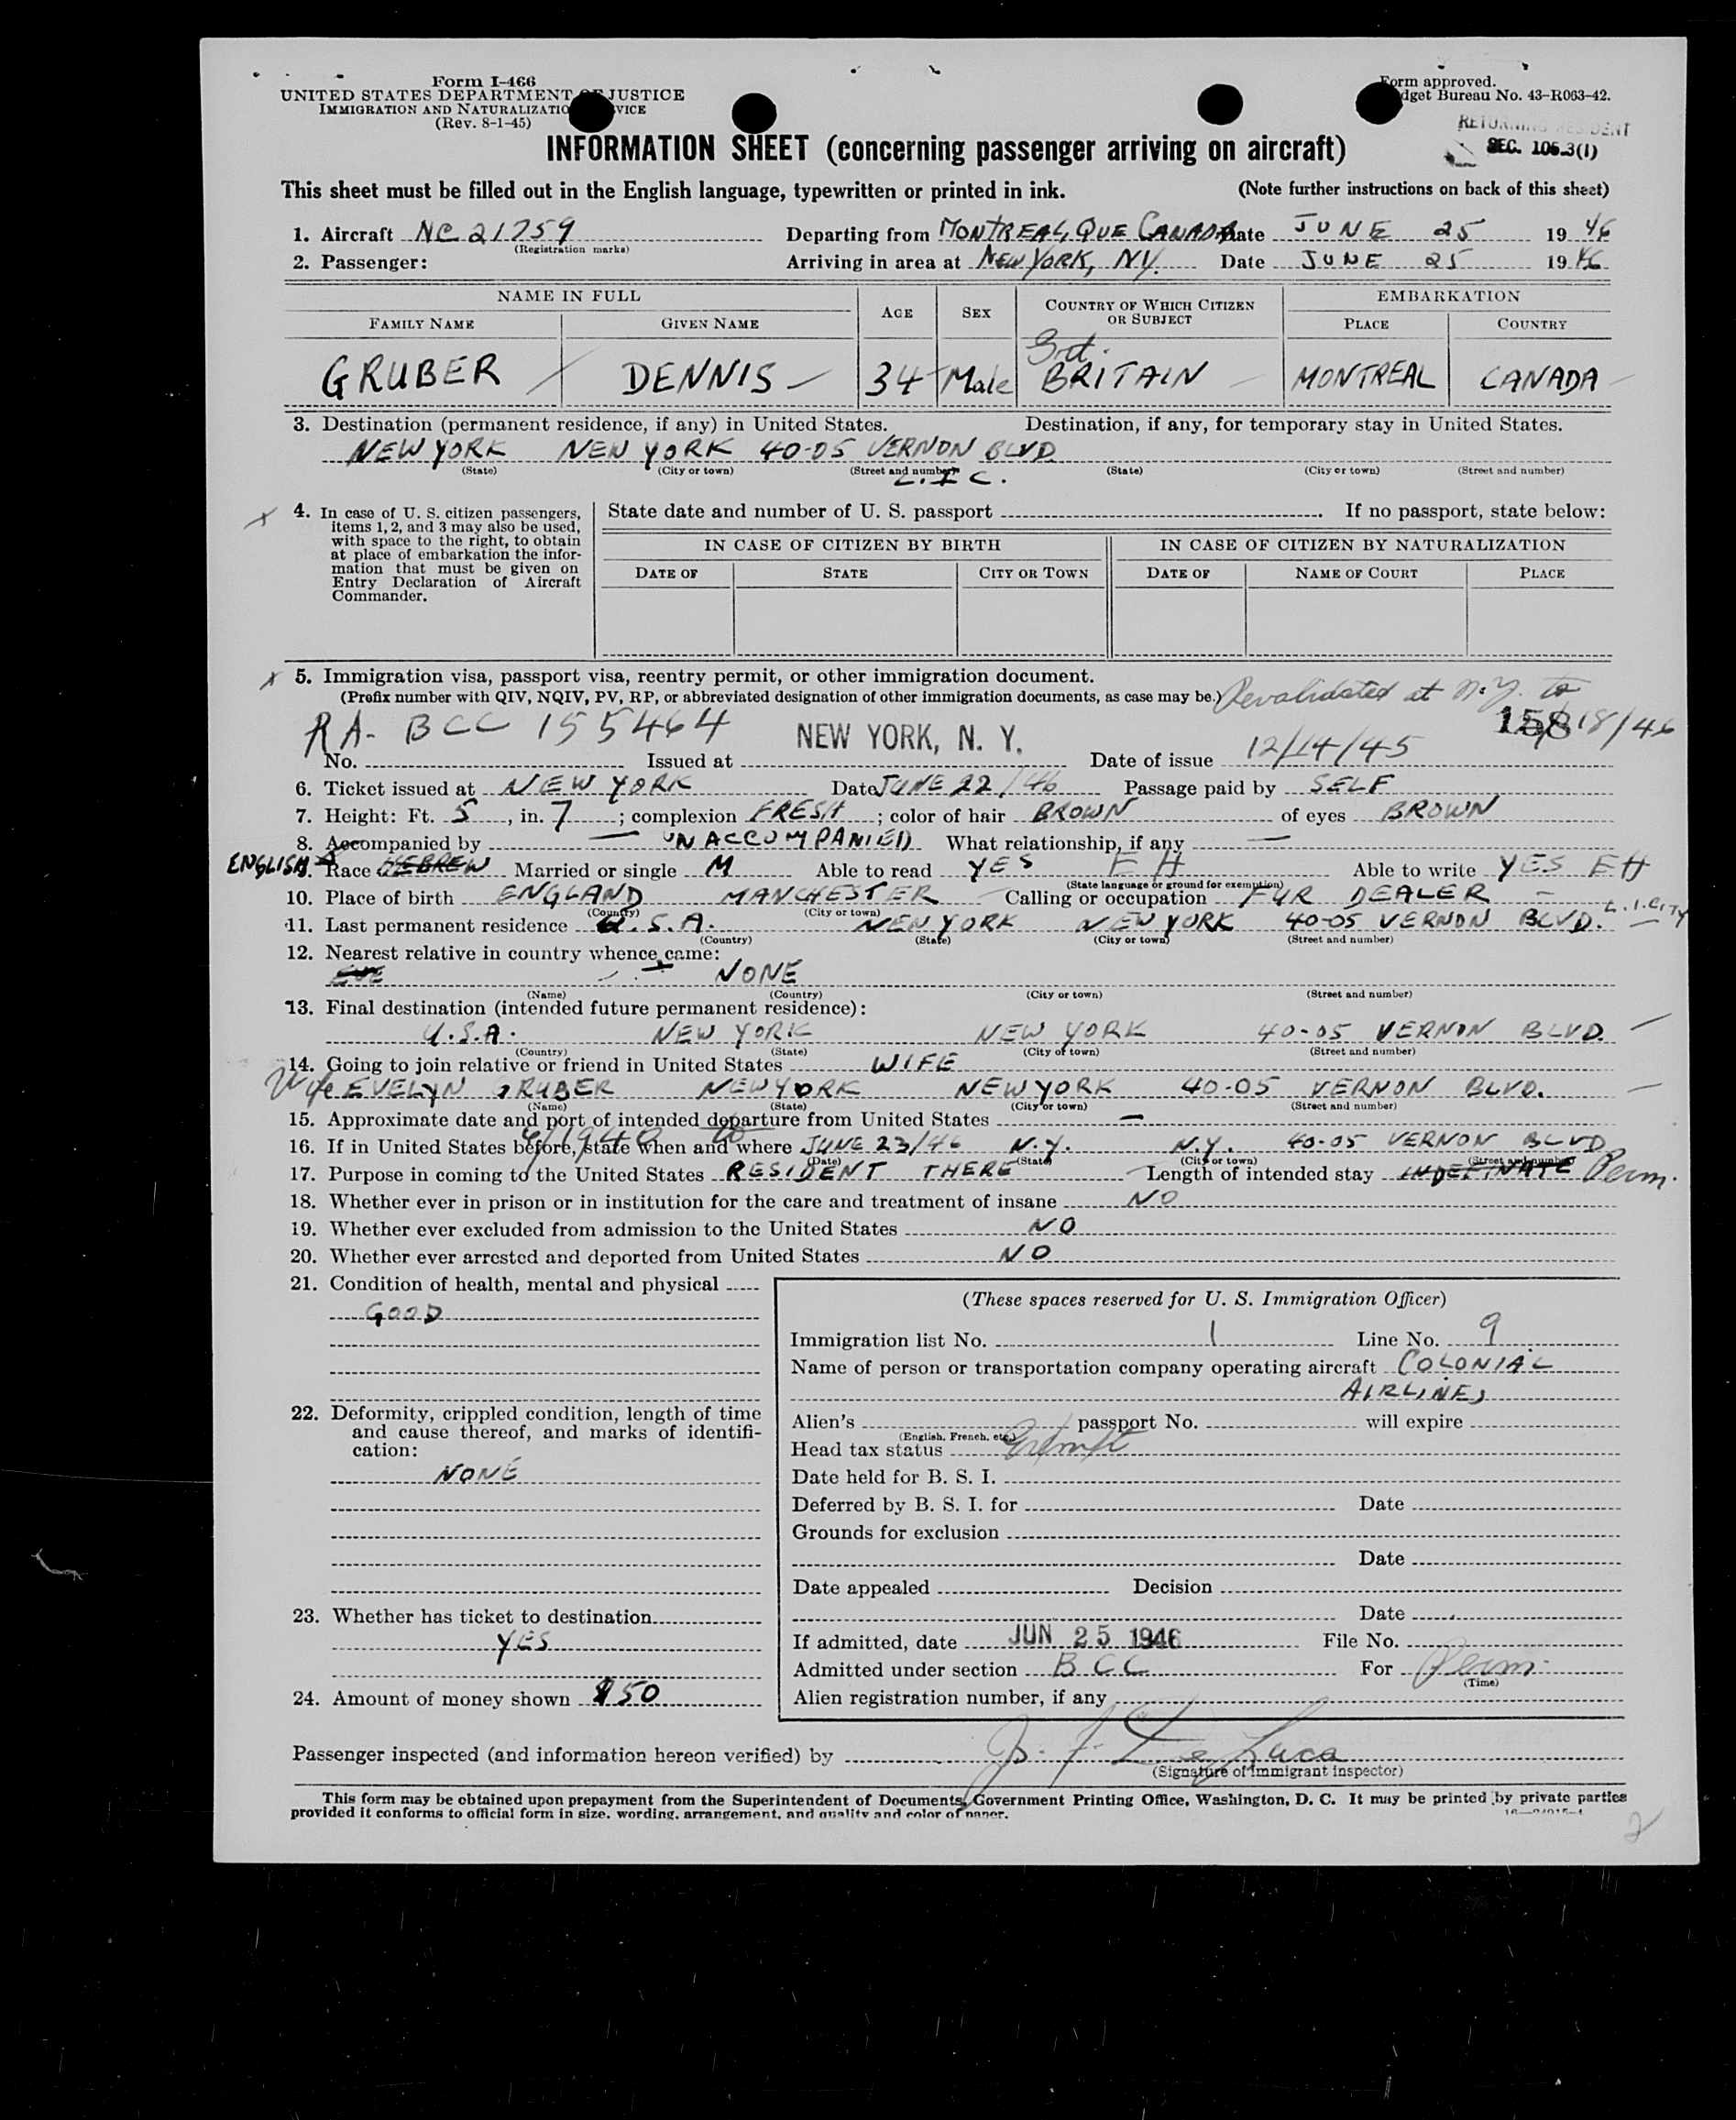 Form I-466
UNITED STATES DEPARTMENT OF JUSTICE
IMMIGRATION AND NATURALIZATION SERVICE
(Rev. 8-1-45)
Form approved.
Budget Bureau No. 43-R063-42.
RETURNING RESIDENT
SEC. 106.3(1)
INFORMATION SHEET (concerning passenger arriving on aircraft)
This sheet must be filled out in the English language, typewritten or printed in ink. (Note further instructions on back of this sheet)
1. Aircraft NC 21759 Departing from MONTREAL, QUE CANADA Date JUNE 25 1946
(Registration marks)
2. Passenger: Arriving in area at NEW YORK, NY. Date JUNE 25 1946
NAME IN FULL AGE SEX COUNTRY OF WHICH CITIZEN OR SUBJECT EMBARKATION
FAMILY NAME GIVEN NAME PLACE COUNTRY
GRUBER DENNIS 34 Male Grt. BRITAIN MONTREAL CANADA
3. Destination (permanent residence, if any) in United States. Destination, if any, for temporary stay in United States.
NEW YORK NEW YORK 40-05 VERNON BLVD
(State) (City or town) (Street and number) (State) (City or town) (Street and number)
L.I C.
4. In case of U. S. citizen passengers, items 1, 2, and 3 may also be used, with space to the right, to obtain at place of embarkation the information that must be given on Entry Declaration of Aircraft Commander.
State date and number of U. S. passport If no passport, state below:
IN CASE OF CITIZEN BY BIRTH IN CASE OF CITIZEN BY NATURALIZATION
DATE OF STATE CITY OR TOWN DATE OF NAME OF COURT PLACE
5. Immigration visa, passport visa, reentry permit, or other immigration document.
(Prefix number with QIV, NQIV, PV, RP, or abbreviated designation of other immigration documents, as case may be.) Revalidated at N.Y. to
158 18/46
RA- BCC 155464 NEW YORK, N. Y. 12/14/45
No. Issued at Date of issue
6. Ticket issued at NEW YORK Date JUNE 22/46 Passage paid by SELF
7. Height: Ft. 5, in. 7; complexion FRESH; color of hair BROWN of eyes BROWN
8. Accompanied by — UNACCOMPANIED What relationship, if any —
ENGLISH 9. Race HEBREW Married or single M Able to read YES E H Able to write YES EH
(State language or ground for exemption)
10. Place of birth ENGLAND MANCHESTER Calling or occupation FUR DEALER
(Country) (City or town)
11. Last permanent residence U.S.A. NEW YORK NEW YORK 40-05 VERNON BLVD. L.I.CITY
(Country) (State) (City or town) (Street and number)
12. Nearest relative in country whence came:
EVE NONE
(Name) (Country) (City or town) (Street and number)
13. Final destination (intended future permanent residence):
U.S.A. NEW YORK NEW YORK 40-05 VERNON BLVD.
(Country) (State) (City or town) (Street and number)
14. Going to join relative or friend in United States WIFE
Wife EVELYN GRUBER NEW YORK NEW YORK 40-05 VERNON BLVD.
(Name) (State) (City or town) (Street and number)
15. Approximate date and port of intended departure from United States —
6/1940 to
16. If in United States before, state when and where JUNE 23/46 N.Y. N.Y. 40-05 VERNON BLVD
(Date) (State) (City or town) (Street and number)
17. Purpose in coming to the United States RESIDENT THERE Length of intended stay INDEFINATE Perm.
18. Whether ever in prison or in institution for the care and treatment of insane NO
19. Whether ever excluded from admission to the United States NO
20. Whether ever arrested and deported from United States NO
21. Condition of health, mental and physical
GOOD
22. Deformity, crippled condition, length of time and cause thereof, and marks of identification:
NONE
23. Whether has ticket to destination
YES
24. Amount of money shown $50
(These spaces reserved for U. S. Immigration Officer)
Immigration list No. 1 Line No. 9
Name of person or transportation company operating aircraft COLONIAL
AIRLINES
Alien's passport No. will expire
(English, French, etc.)
Head tax status Exempt
Date held for B. S. I.
Deferred by B. S. I. for Date
Grounds for exclusion
Date
Date appealed Decision
Date
If admitted, date JUN 25 1946 File No.
Admitted under section BCC For Perm.
(Time)
Alien registration number, if any
Passenger inspected (and information hereon verified) by J. F. De Luca
(Signature of Immigrant Inspector)
This form may be obtained upon prepayment from the Superintendent of Documents, Government Printing Office, Washington, D. C. It may be printed by private parties
provided it conforms to official form in size, wording, arrangement, and quality and color of paper.
2